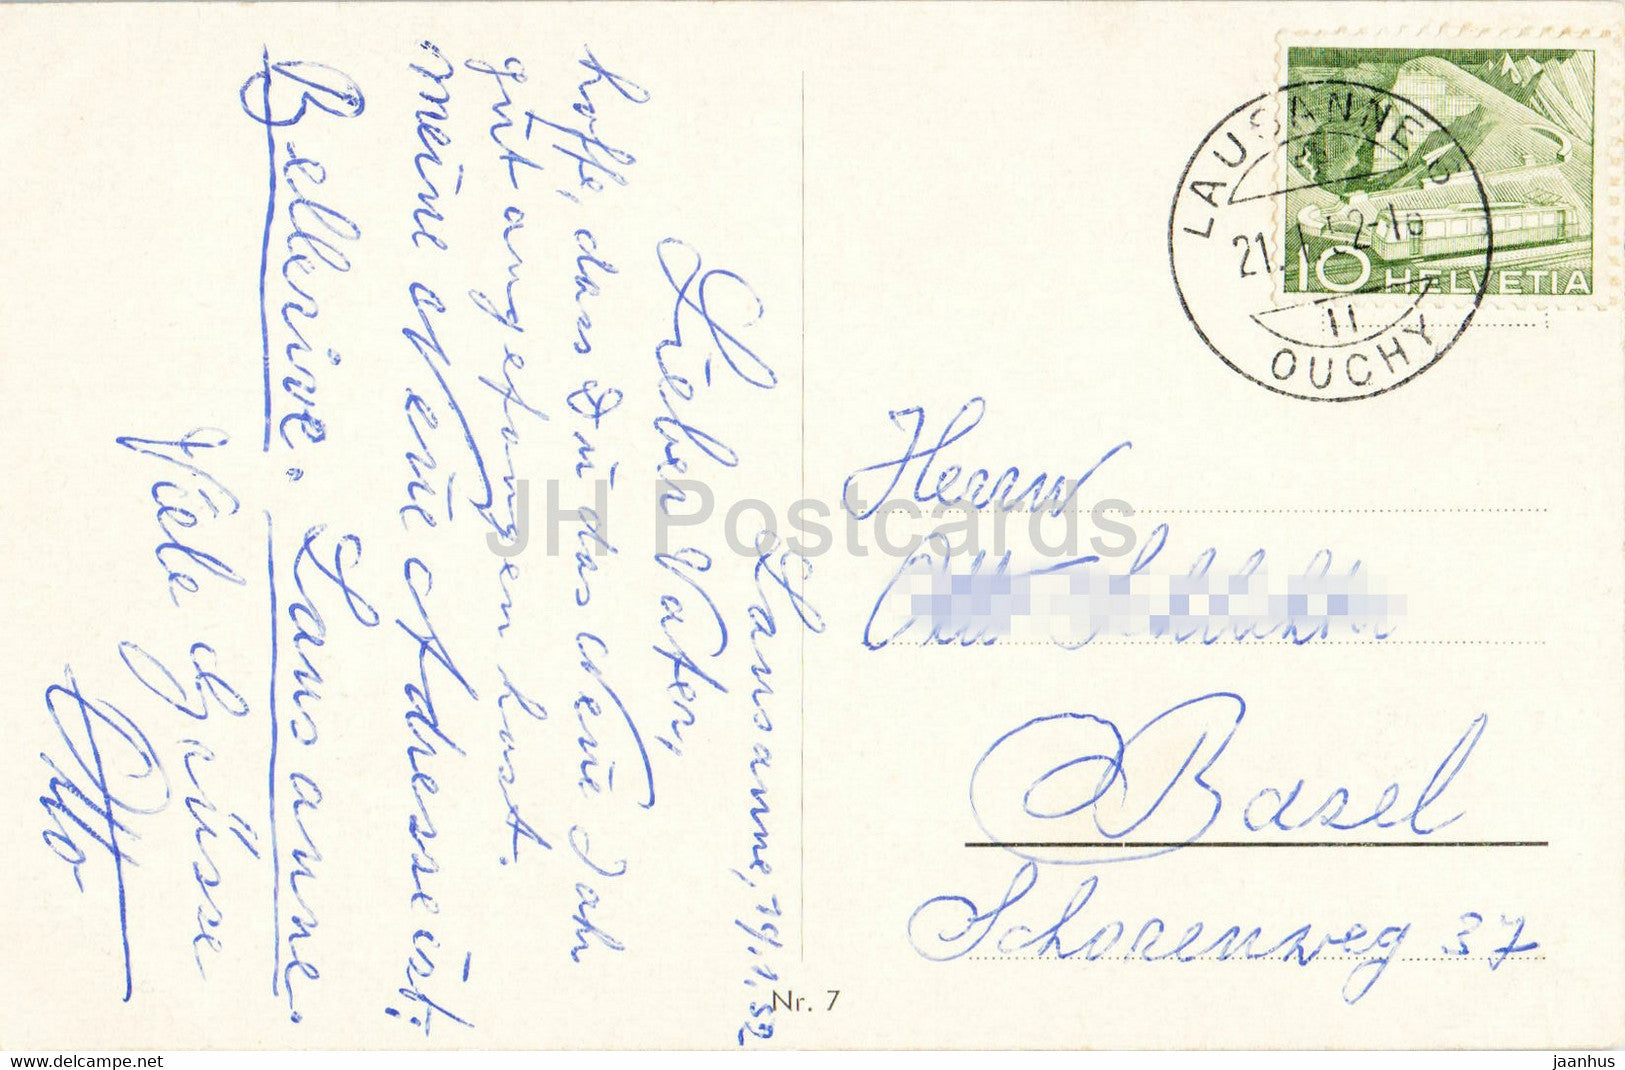 Lausanne, 19.1.52
Lieber Vater,
hoffe, dass Du das Neue Jahr
gut angefangen hast.
Meine Neue Adresse ist:
Bellerive. Lausanne.
Viele Grüsse
Otto
LAUSANNE
21.1.52-18
11
OUCHY
10 HELVETIA
Herrn
Basel
Schorenweg 37
JH Postcards
Nr. 7
www.delcampe.net
jaanhus